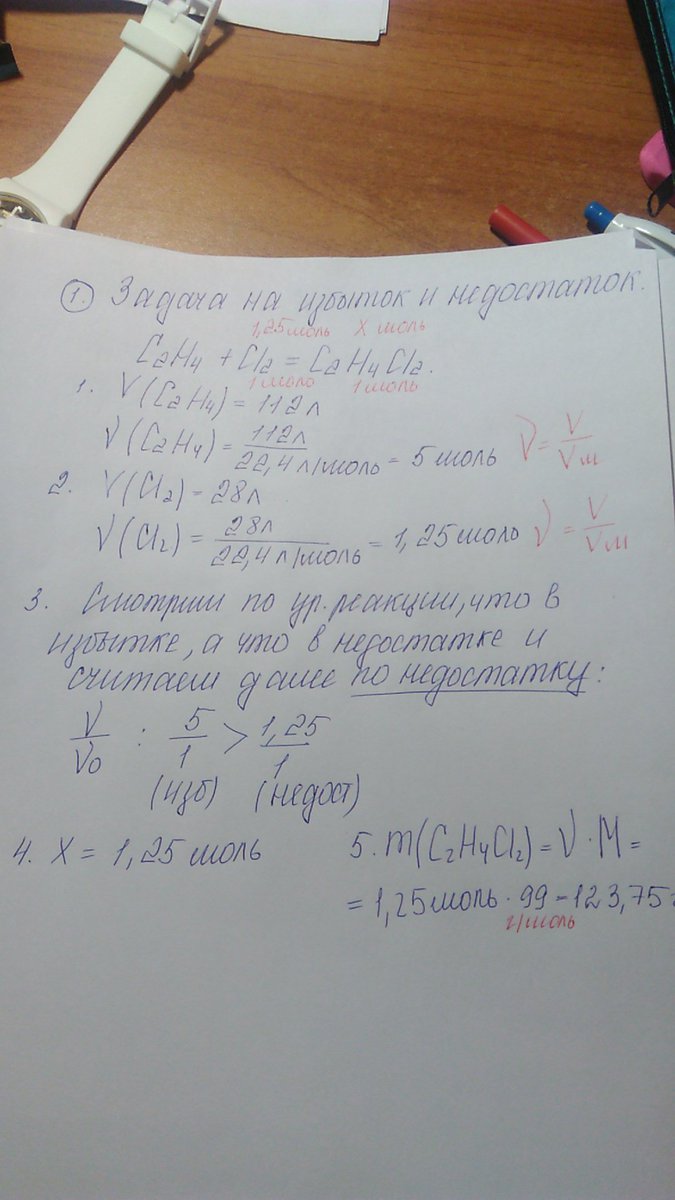 1. Задача на избыток и недостаток.
1,25 моль х моль
C2H4 + Cl2 = C2H4Cl2.
1 моль 1 моль
1. V(C2H4) = 112 л
ν(C2H4) = 112л / 22,4 л/моль = 5 моль ν = V / Vм
2. V(Cl2) = 28л
ν(Cl2) = 28л / 22,4 л/моль = 1,25 моль ν = V / Vм
3. Смотрим по ур. реакции, что в
избытке, а что в недостатке и
считаем далее по недостатку:
ν / ν0 : 5 / 1 > 1,25 / 1
(изб) (недост)
4. X = 1,25 моль
5. m(C2H4Cl2) = ν · M =
= 1,25 моль · 99 = 123,75г
г/моль